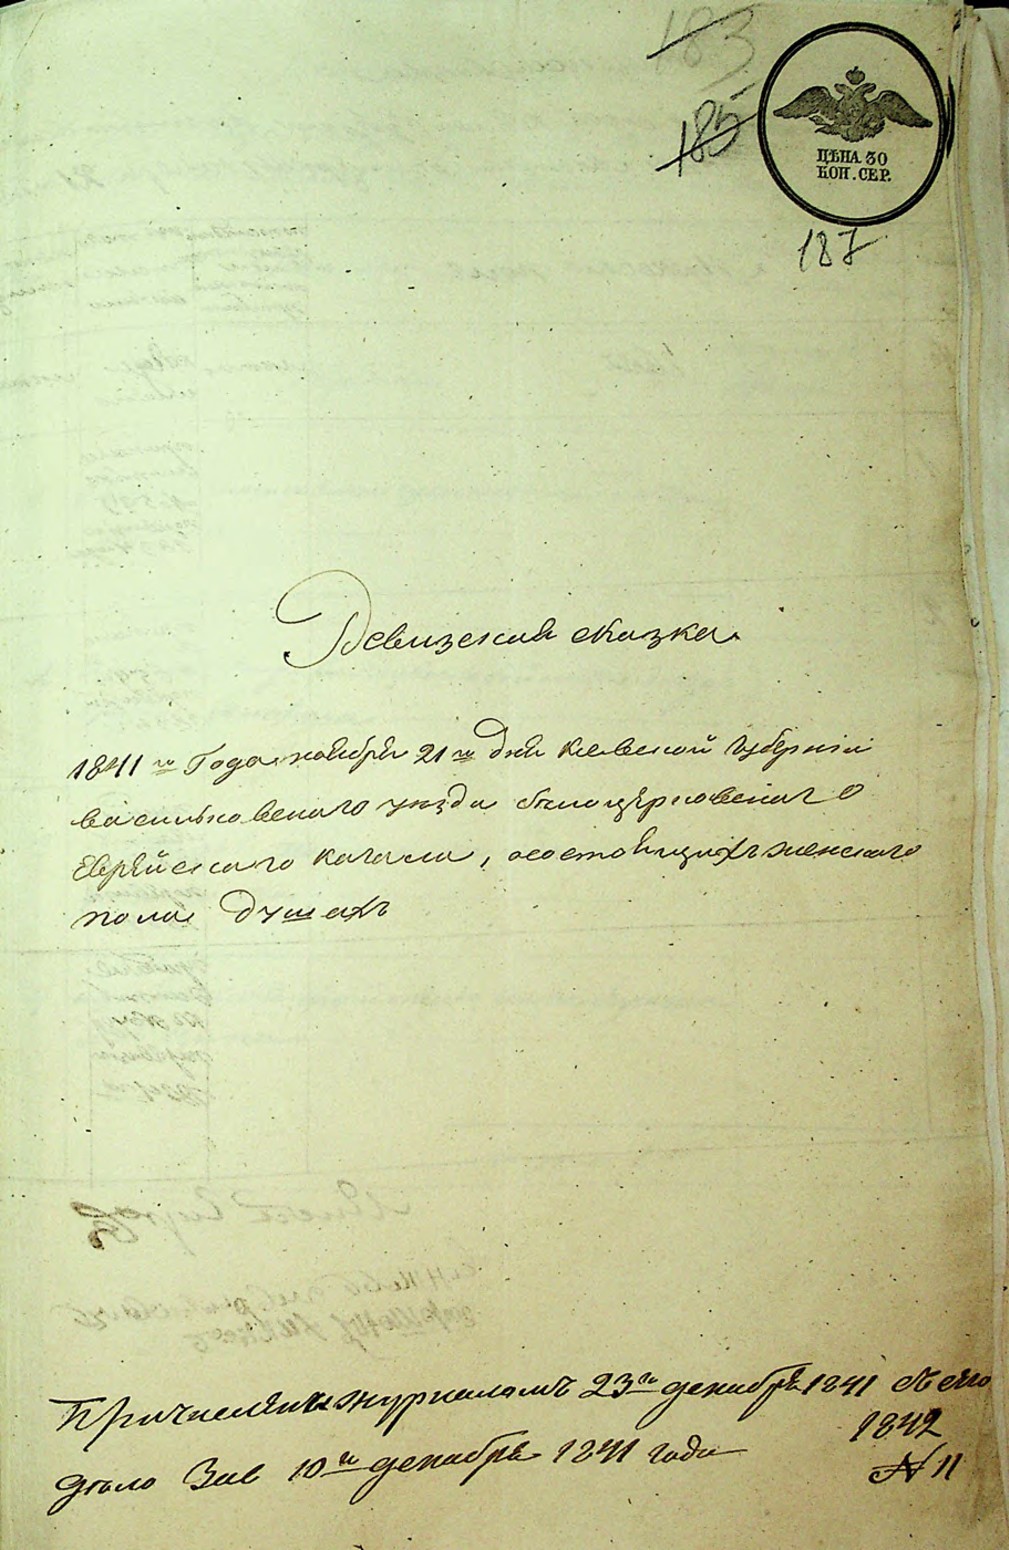 183
185
ЦѢНА 30
КОП. СЕР.
187
Ревизская сказка
1841 го Года ноября 21 го дня Киевской Губерніи
васильковскаго уѣзда белоцерковскаго
Еврейскаго кагала, о состоящихъ женскаго
пола душахъ
Причислены журналомъ 23 го декабря 1841
1842
дѣло 10 го декабря 1841 года
№ 11